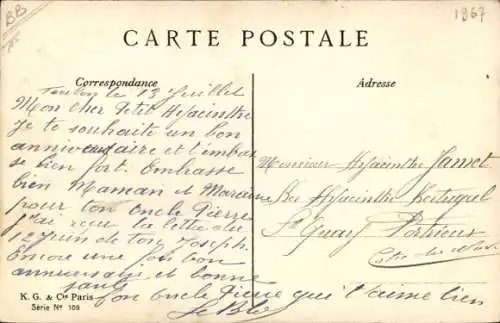 BB
1967
CARTE POSTALE
Correspondance
Adresse
Toulon le 13 Juillet
Mon cher Petit Hyacinthe
Je te souhaite un bon
anniversaire et t'embrasse
bien fort. Embrasse
bien Maman et Marraine
pour ton Oncle Pierre
J'ai reçu la lettre du
12 juin de ton Joseph.
Encore une fois bon
anniversaire et bonne
santé
Ton Oncle Pierre qui t'aime bien
Le B
Monsieur Hyacinthe Jamet
Hyacinthe
St Quay Portrieux
Côtes du Nord
K. G. & Cie Paris
Série No 109